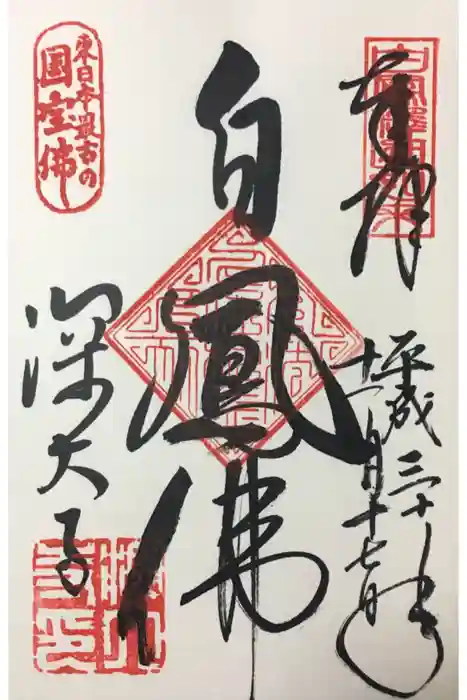 奉拝
平成三十年
十一月十七日
白鳳佛
深大寺
東日本最古の
国宝佛